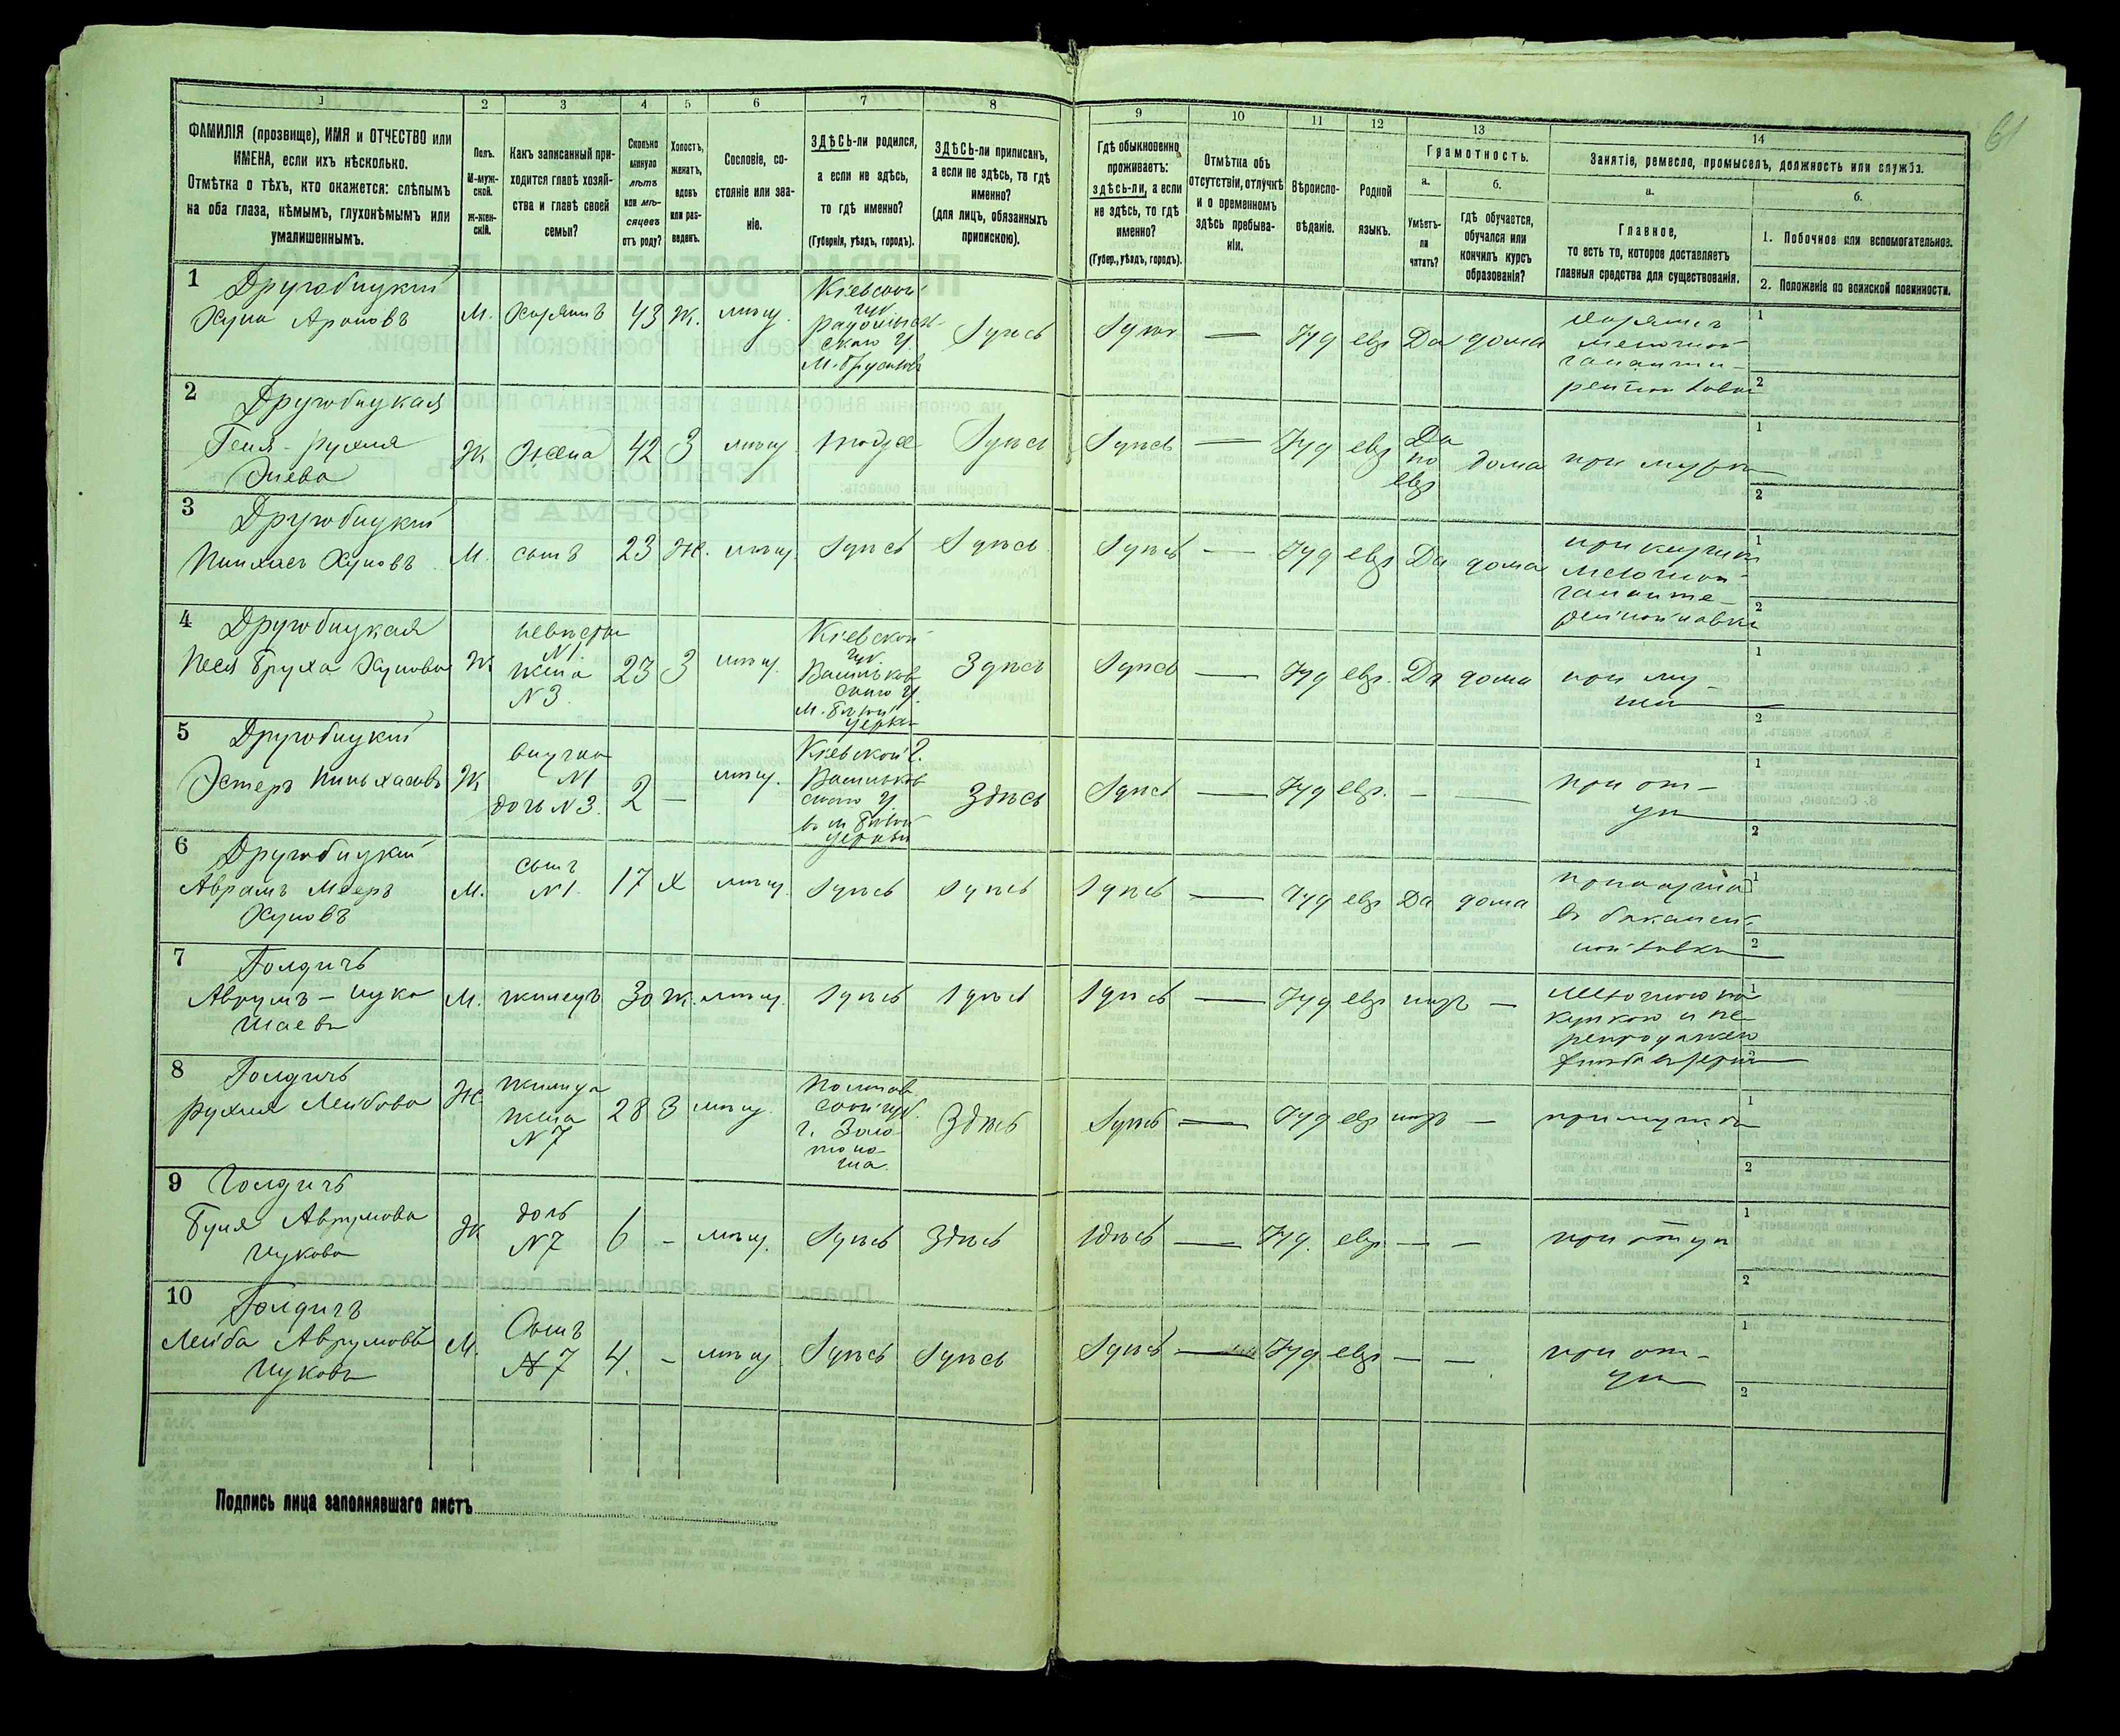 61
1
2
3
4
5
6
7
8
9
10
11
12
13
14
ФАМИЛІЯ (прозвище), ИМЯ и ОТЧЕСТВО или
ИМЕНА, если ихъ нѣсколько.
Отмѣтка о тѣхъ, кто окажется: слѣпымъ
на оба глаза, нѣмымъ, глухонѣмымъ или
умалишеннымъ.
Полъ.
М-муж-
ской.
Ж-жен-
скій.
Какъ записанный при-
ходится главѣ хозяй-
ства и главѣ своей
семьи?
Сколько
минуло
лѣтъ
или мѣ-
сяцевъ
отъ роду?
Холостъ,
женатъ,
вдовъ
или раз-
веденъ.
Сословіе, со-
стояніе или зва-
ніе.
ЗДѢСЬ-ли родился,
а если не здѣсь,
то гдѣ именно?
(Губернія, уѣздъ, городъ).
ЗДѢСЬ-ли приписанъ,
а если не здѣсь, то гдѣ
именно?
(для лицъ, обязанныхъ
припискою).
Гдѣ обыкновенно
проживаетъ:
здѣсь-ли, а если
не здѣсь, то гдѣ
именно?
(Губер., уѣздъ, городъ).
Отмѣтка объ
отсутствіи, отлучкѣ
и о временномъ
здѣсь пребыва-
ніи.
Вѣроиспо-
вѣданіе.
Родной
языкъ.
Грамотность.
а.
Умѣетъ-
ли
читать?
б.
гдѣ обучается,
обучался или
кончилъ курсъ
образованія?
Занятіе, ремесло, промыселъ, должность или служба.
а.
Главное,
то есть то, которое доставляетъ
главныя средства для существованія.
б.
1. Побочное или вспомогательное.
2. Положеніе по воинской повинности.
1 Другобицкій
Хуна Ароновъ
М. Хозяинъ 43 Ж. мѣщ.
Кіевской
губ.
Радомысль-
скаго у.
М. Брусиловъ
Здѣсь Здѣсь — Іуд евр Да дома
2 Другобицкая
Геня-Рухля
Ж Жена 42 З мѣщ. Здѣсь Здѣсь — Іуд евр
Да
по
евр
дома при мужѣ
3 Другобицкій
Пинхасъ Хуновъ
М. сынъ 23 Ж. мѣщ. Здѣсь Здѣсь Здѣсь — Іуд евр Да дома
4 Другобицкая
Песя Бруха
Ж
невѣстка
N1.
жена
N3
23 З мѣщ.
Кіевской
губ.
Васильков-
скаго у.
М. Бѣлой
Церкви
Здѣсь Здѣсь — Іуд евр. Да дома
при му-
жѣ
5 Другобицкій
Эстеръ Пиньхасовъ
Ж
внучка
N1
дочь N3.
2 — мѣщ.
Кіевской г.
Васильков-
скаго у.
въ м. Бѣлой
Церкви
Здѣсь Здѣсь — Іуд евр. — —
при от-
цѣ
6 Другобицкій
Аврамъ Мееръ
Хуновъ
М.
сынъ
N1.
17 Х мѣщ. Здѣсь Здѣсь Здѣсь — Іуд евр Да дома
въ бакалей-
ной лавкѣ
7 Голдичъ
Аврумъ-Ицко
Шаевъ
М. жилецъ 30 Ж. мѣщ. Здѣсь Здѣсь Здѣсь — Іуд евр —
8 Голдичъ
Рухля Лейбова
Ж
жилица
жена
N7
28 З мѣщ.
Полтав-
ской губ.
г. Золо-
тоно-
ша
Здѣсь Здѣсь — Іуд евр — при мужѣ
9 Голдичъ
Буня Аврумова
Ицкова
Ж
дочь
N7
6 – мѣщ. Здѣсь Здѣсь Здѣсь — Іуд. евр — — при отцѣ
10 Голдичъ
Лейба Аврумовъ
Ицковъ
М.
Сынъ
N7
4. – мѣщ Здѣсь Здѣсь Здѣсь — Іуд евр — —
при от-
цѣ
Подпись лица заполнявшаго листъ